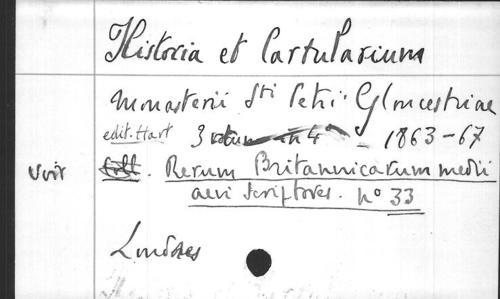 Historia et Cartularium
Monasterii Sti Petri Gloucestriae
edit. Hart 3 volum in 4° - 1863-67
Voir Coll. Rerum Britannicarum medii
aevi scriptores. n° 33
Londres